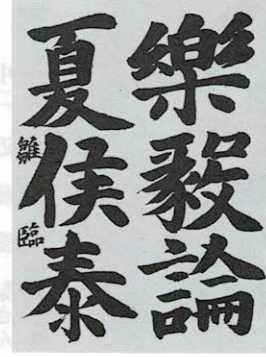 樂毅論
夏侯泰
雛臨